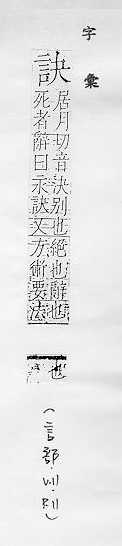 字彙
訣
居月切音決别也絕也辭也
死者辭曰永訣又方術要法
也